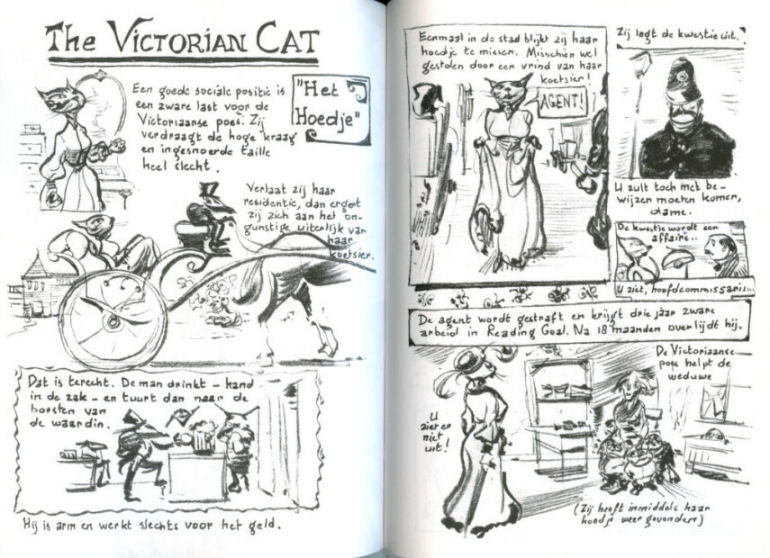 The VICTORIAN CAT
"Het
Hoedje"
Een goede sociale positie is
een zware last voor de
Victoriaanse poes. Zij
verdraagt de hoge kraag
en ingesnoerde taille
heel slecht.
Verlaat zij haar
residentie, dan ergert
zij zich aan het on-
gunstige uiterlijk van
haar
koetsier.
Dat is terecht. De man drinkt - hand
in de zak - en tuurt dan naar de
borsten van
de waardin.
Hij is arm en werkt slechts voor het geld.
Eenmaal in de stad blijkt zij haar
hoedje te missen. Misschien wel
gestolen door een vrind van haar
koetsier!
AGENT!
Zij legt de kwestie uit.
U zult toch met be-
wijzen moeten komen,
dame.
De kwestie wordt een
affaire..
U ziet, hoofdcommissaris...
De agent wordt gestraft en krijgt drie jaar zware
arbeid in Reading Goal. Na 18 maanden overlijdt hij.
U
ziet er
niet
uit!
De Victoriaanse
poes helpt de
weduwe
(Zij heeft inmiddels haar
hoedje weer gevonden)